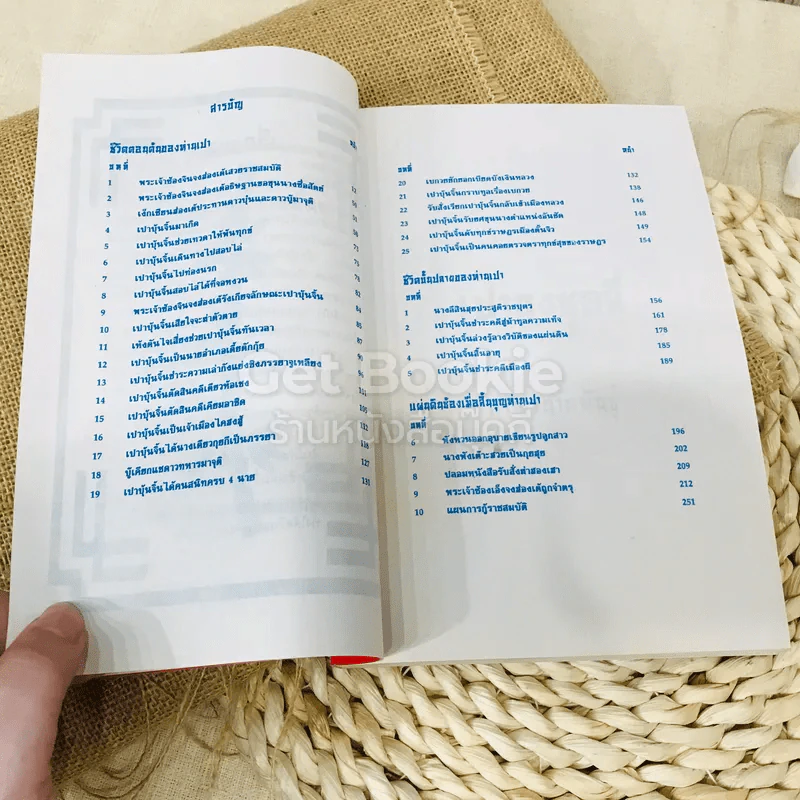 สารบัญ
ชีวิตตอนต้นของท่านเปา
บทที่
1 พระเจ้าซ้องจินจงฮ่องเต้เสวยราชสมบัติ
2 พระเจ้าซ้องจินจงฮ่องเต้อธิษฐานขอขุนนางซื่อสัตย์ 12
3 เง็กเซียนฮ่องเต้ประทานดาวบุ๋นและดาวบู๊มาจุติ
4 เปาบุ้นจิ้นมาเกิด 51
5 เปาบุ้นจิ้นช่วยเทวดาให้พ้นทุกข์ 56
6 เปาบุ้นจิ้นเดินทางไปสอบไล่ 71
7 เปาบุ้นจิ้นไปท่องนรก 73
8 เปาบุ้นจิ้นสอบไล่ได้ที่จอหงวน 76
9 พระเจ้าซ้องจินจงฮ่องเต้รังเกียจลักษณะเปาบุ้นจิ้น 82
10 เปาบุ้นจิ้นเสียใจจะฆ่าตัวตาย 84
11 เท้งตันไจเสี่ยงช่วยเปาบุ้นจิ้นทันเวลา 86
12 เปาบุ้นจิ้นเป็นนายอำเภอเตี้ยตักกุ้ย 87
13 เปาบุ้นจิ้นชำระความเล่ากังแย่งชิงภรรยาจูเหลียง 90
14 เปาบุ้นจิ้นตัดสินคดีเตียวท้อเซง
15 เปาบุ้นจิ้นตัดสินคดีเคียมอาชิด
16 เปาบุ้นจิ้นเป็นเจ้าเมืองไคฮงฮู้ 112
17 เปาบุ้นจิ้นได้นางเตียวกุยกีเป็นภรรยา 118
18 บู๊เคียกแชดาวทหารมาจุติ 127
19 เปาบุ้นจิ้นได้คนสนิทครบ 4 นาย 131
หน้า
บทที่
20 เบกวยยักยอกเบียดบังเงินหลวง 132
21 เปาบุ้นจิ้นกราบทูลเรื่องเบกวย 138
22 รับสั่งเรียกเปาบุ้นจิ้นกลับเข้าเมืองหลวง 146
23 เปาบุ้นจิ้นรับยศขุนนางตำแหน่งอันซัด 148
24 เปาบุ้นจิ้นดับทุกข์ราษฎรเมืองตั้นจิว 149
25 เปาบุ้นจิ้นเป็นคนคอยตรวจตราทุกข์สุขของราษฎร 154
ชีวิตบั้นปลายของท่านเปา
บทที่
1 นางลีสินฮุยประสูติราชบุตร 156
2 เปาบุ้นจิ้นชำระคดีฮู้ห้าทูลความเท็จ 161
3 เปาบุ้นจิ้นล่วงรู้ลางวิบัติของแผ่นดิน 178
4 เปาบุ้นจิ้นสิ้นอายุ 185
5 เปาบุ้นจิ้นชำระคดีเมืองผี 189
แผ่นดินซ้องเมื่อสิ้นบุญท่านเปา
บทที่
6 พังหวนออกอุบายเขียนรูปลูกสาว 196
7 นางพังเต้าฮวยเป็นกุยฮุย 202
8 ปลอมหนังสือรับสั่งฆ่าฮองเฮา 209
9 พระเจ้าซ้องเอ็งจงฮ่องเต้ถูกจำตรุ 212
10 แผนการกู้ราชสมบัติ 251
Get Bookie
ร้านหนังสือมือดี